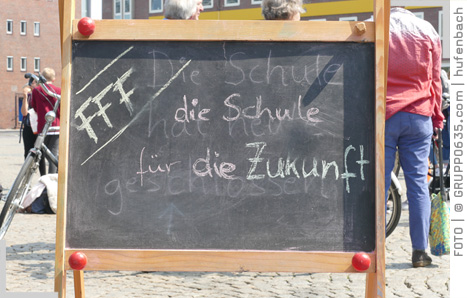 FFF
Die Schule
die Schule
hat neu
für die Zukunft
geschlossen
FOTO | © GRUPPO635.com | hufenbach